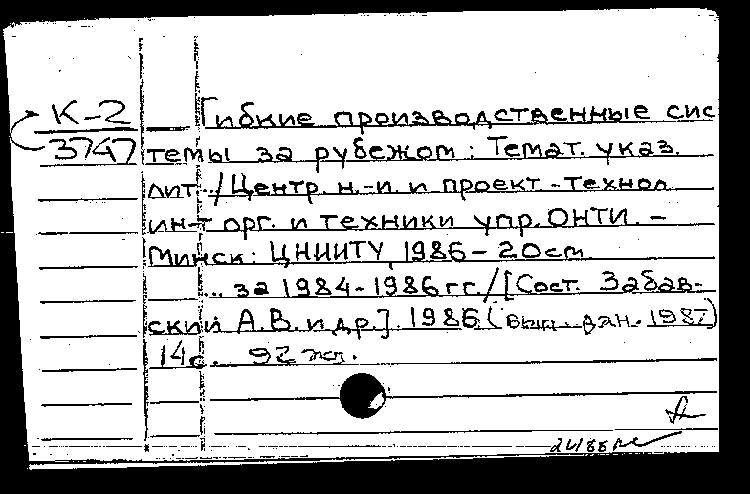 К-2
3747
Гибкие производственные сис
темы за рубежом : Темат. указ.
лит. / Центр. н.-и. и проект.-технол
ин-т орг. и техники упр. ОНТИ. –
Минск: ЦНИИТУ, 1986 – 20 cm
... за 1984-1986 гг. / [Сост. Забав-
ский А.В. и др.]. 1986 (вып. дан. 1987)
14 с. 92 экз.